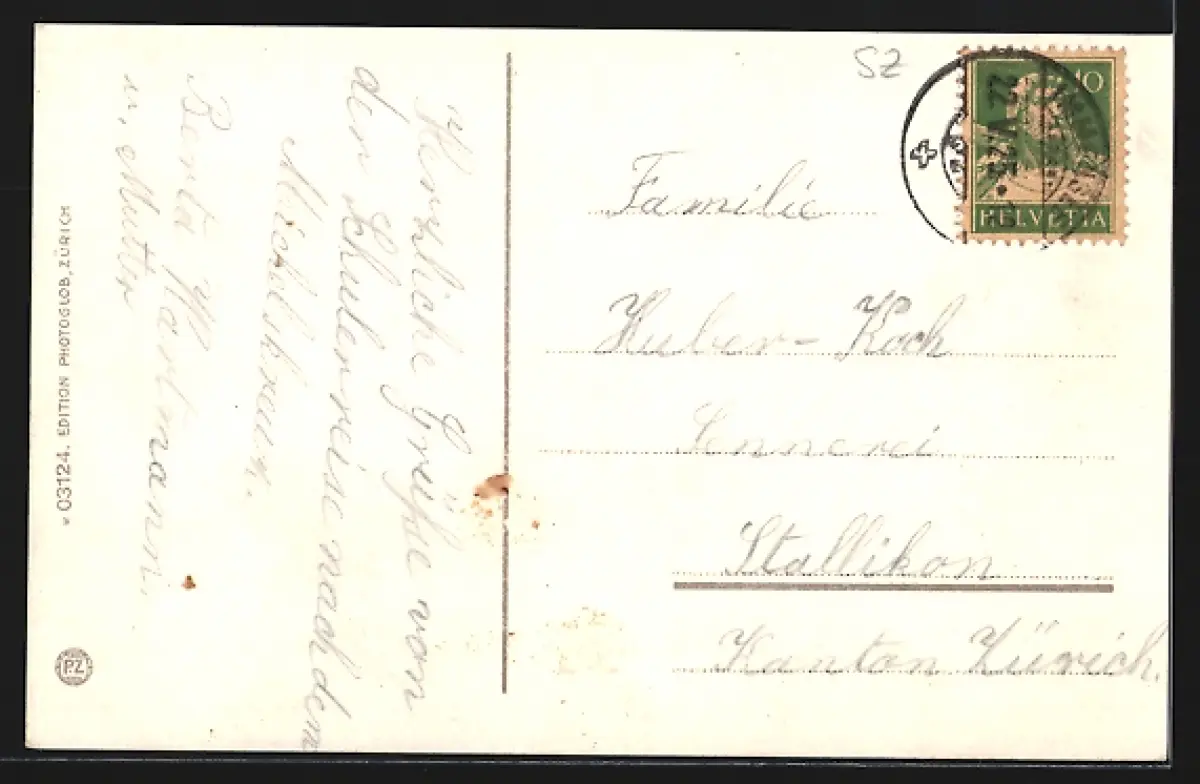 Herzliche Grüße von
der Schulreise nach dem
Michelskreuz.
Berta Hartmann.
u. Mutter
v 03124. EDITION PHOTOGLOB, ZÜRICH
PZ
SZ
10
HELVETIA
Familie
Huber-Koch
Sennerei
Stallikon
Kanton Zürich.